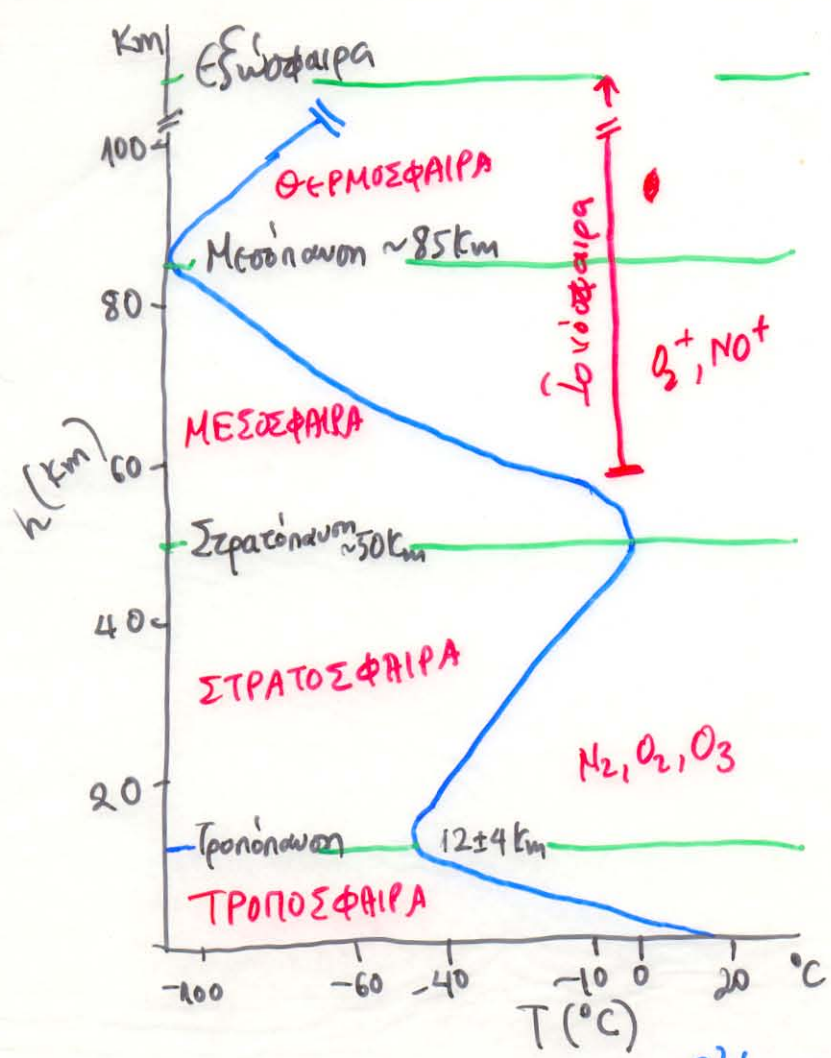 Km
Εξώσφαιρα
100
ΘΕΡΜΟΣΦΑΙΡΑ
Μεσόπαυση ~85Km
80
Ιονόσφαιρα
O₂⁺, NO⁺
ΜΕΣΟΣΦΑΙΡΑ
h (Km)
60
Στρατόπαυση ~50Km
40
ΣΤΡΑΤΟΣΦΑΙΡΑ
N₂, O₂, O₃
20
Τροπόπαυση 12±4 Km
ΤΡΟΠΟΣΦΑΙΡΑ
-100 -60 -40 -10 0 20 °C
T (°C)